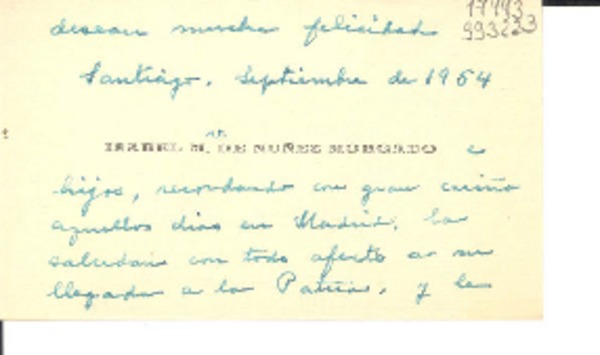 desean mucha felicidad
Santiago, Septiembre de 1954
ISABEL M. DE NUÑEZ MORGADO e
hijos, recordando con gran cariño
aquellos dias en Madrid, la
saludan con todo afecto a su
llegada a la Patria, y le